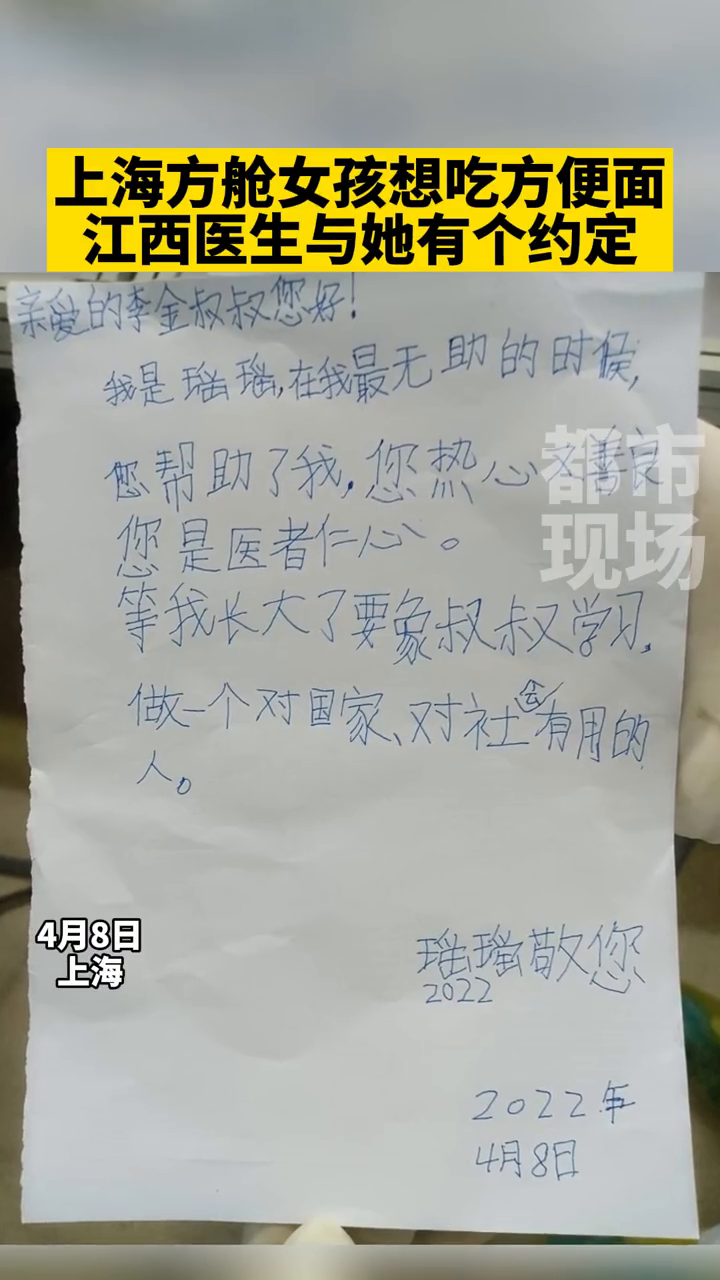 上海方舱女孩想吃方便面
江西医生与她有个约定
亲爱的李金叔叔您好!
我是瑶瑶,在我最无助的时候,
您帮助了我,您热心又善良
您是医者仁心。
等我长大了要象叔叔学习,
做一个对国家、对社会有用的
人。
瑶瑶敬您
2022
2022年
4月8日
都市
现场
4月8日
上海